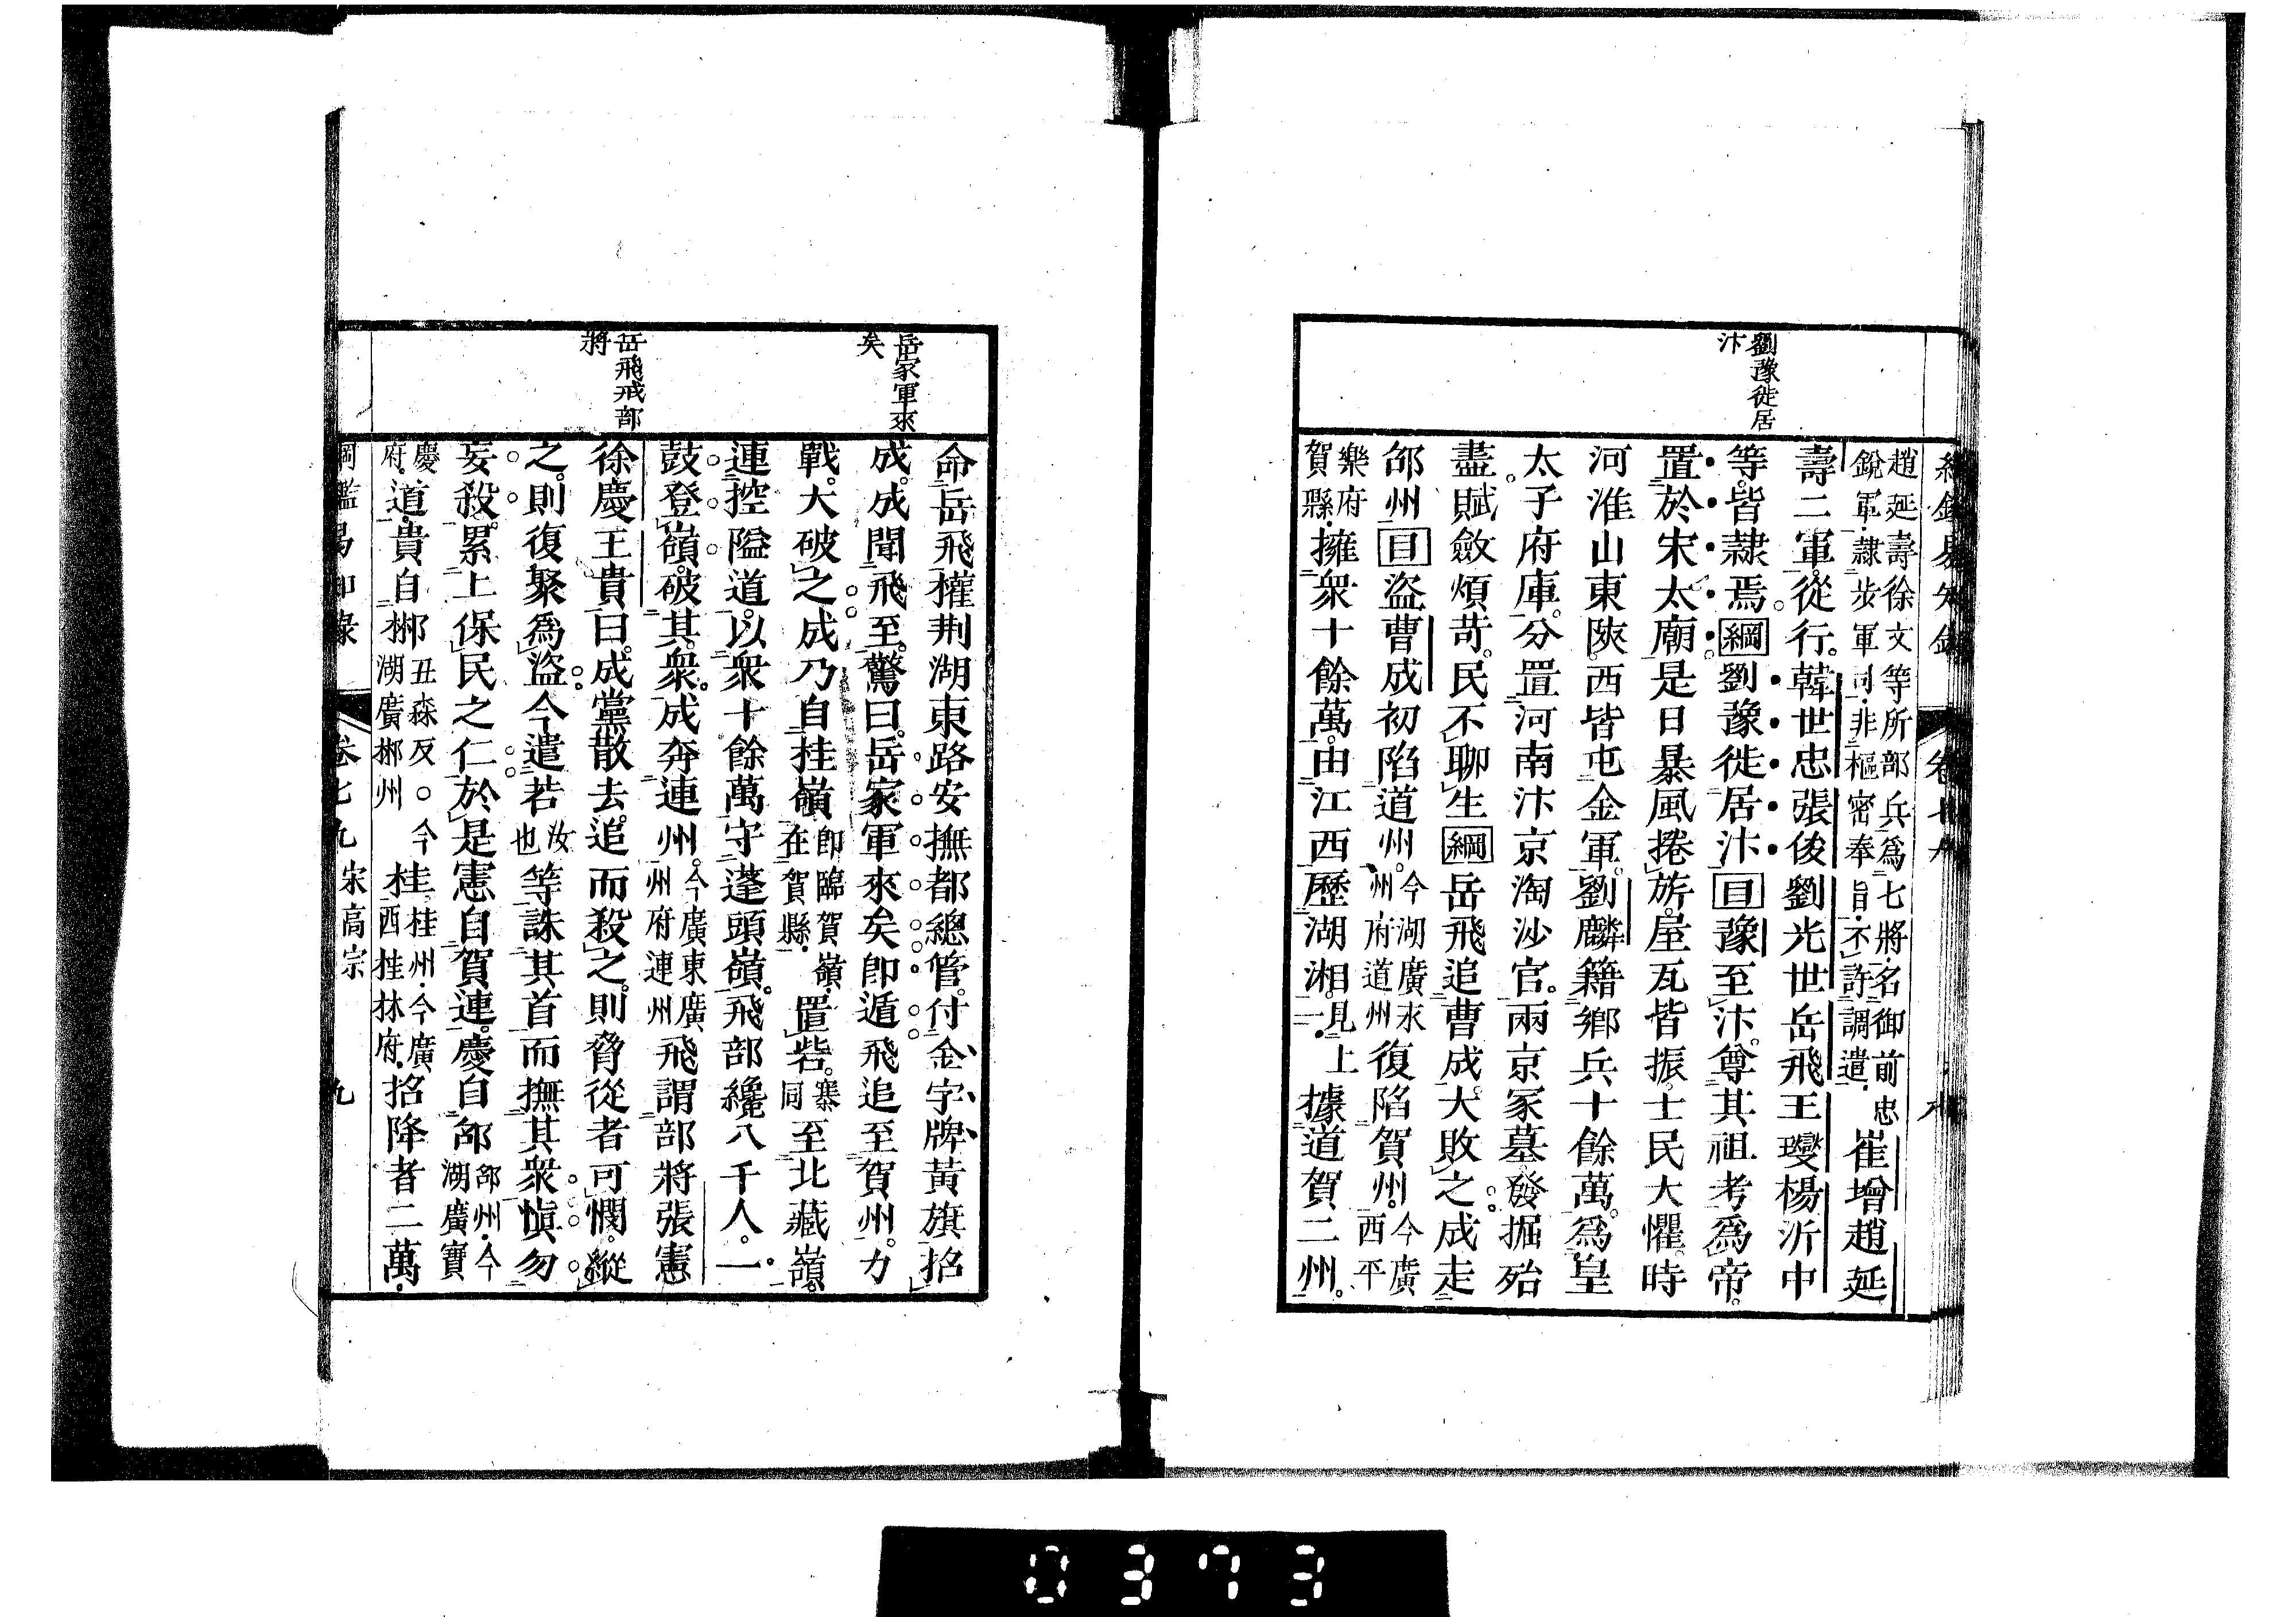 劉豫徙居
汴
趙延壽徐文等所部兵爲七將名御前忠
銳軍隸步軍司非樞密奉旨不許調遣
崔增趙延
壽二軍從行韓世忠張俊劉光世岳飛王𤫉楊沂中
等皆隸焉綱劉豫徙居汴目豫至汴尊其祖考爲帝
置於宋太廟是日暴風捲旂屋瓦皆振士民大懼時
河淮山東陝西皆屯金軍劉麟籍鄉兵十餘萬爲皇
太子府庫分置河南汴京淘沙官兩京冢墓發掘殆
盡賦斂煩苛民不聊生綱岳飛追曹成大敗之成走
邰州目盜曹成初陷道州今湖廣永州府道州復陷賀州今廣西平
樂府賀縣擁衆十餘萬由江西歷湖湘見上二據道賀二州
岳家軍來
矣
岳飛戒部
將
命岳飛權荆湖東路安撫都總管付金字牌黃旗招
成成聞飛至驚曰岳家軍來矣即遁飛追至賀州力
戰大破之成乃自桂嶺即臨賀嶺在賀縣置砦寨同至北藏嶺
連控隘道以衆十餘萬守蓬頭嶺飛部纔八千人一
鼓登嶺破其衆成奔連州今廣東廣州府連州飛謂部將張憲
徐慶王貴曰成黨散去追而殺之則脅從者可憫縱
之則復聚爲盜今遣若汝也等誅其首而撫其衆愼勿
妄殺累上保民之仁於是憲自賀連慶自邰邰州今湖廣寶
慶府道貴自郴丑森反○今湖廣郴州桂桂州今廣西桂林府招降者二萬
綱鑑易知錄 卷七九 宋高宗 九